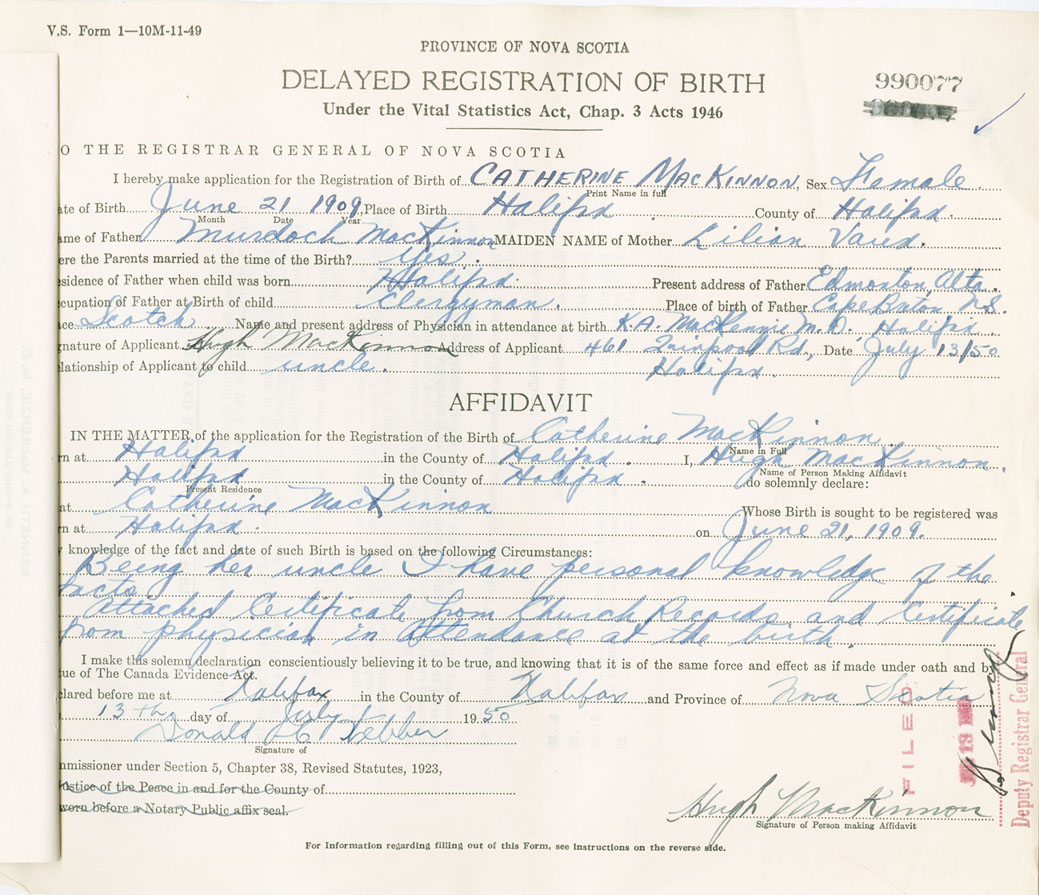 V.S. Form 1—10M-11-49
PROVINCE OF NOVA SCOTIA
DELAYED REGISTRATION OF BIRTH
990077
Under the Vital Statistics Act, Chap. 3 Acts 1946
O THE REGISTRAR GENERAL OF NOVA SCOTIA
I hereby make application for the Registration of Birth of CATHERINE MACKINNON, Sex Female
Print Name in full
ate of Birth June 21 1909, Place of Birth Halifax County of Halifax.
Month Date Year
ame of Father Murdoch MacKinnon MAIDEN NAME of Mother Lilian
ere the Parents married at the time of the Birth? Yes.
sidence of Father when child was born Halifax. Present address of Father Edmonton, Alta.
cupation of Father at Birth of child Clergyman. Place of birth of Father Cape Breton N.S.
ce Scotch Name and present address of Physician in attendance at birth K.A. MacKenzie M.D. Halifax.
nature of Applicant Hugh MacKinnon Address of Applicant 461 Rd., Date July 13/50
elationship of Applicant to child uncle. Halifax.
AFFIDAVIT
IN THE MATTER of the application for the Registration of the Birth of Catherine MacKinnon
Name in Full
rn at Halifax in the County of Halifax. I, Hugh MacKinnon.
Name of Person Making Affidavit
Halifax in the County of Halifax. do solemnly declare:
Present Residence
at Catherine MacKinnon Whose Birth is sought to be registered was
n at Halifax. on June 21, 1909.
knowledge of the fact and date of such Birth is based on the following Circumstances:
Being her uncle I have personal knowledge of the
facts.
Attached Certificate from Church Records and Certificate
from physician in attendance at the birth.
I make this solemn declaration conscientiously believing it to be true, and knowing that it is of the same force and effect as if made under oath and by
ue of The Canada Evidence Act.
clared before me at Halifax in the County of Halifax and Province of Nova Scotia
13th day of July 1950
Donald Webber
Signature of
mmissioner under Section 5, Chapter 38, Revised Statutes, 1923,
ustice of the Peace in and for the County of
worn before a Notary Public affix seal.
Hugh MacKinnon
Signature of Person making Affidavit
FILED
Deputy Registrar General
For Information regarding filling out of this Form, see instructions on the reverse side.